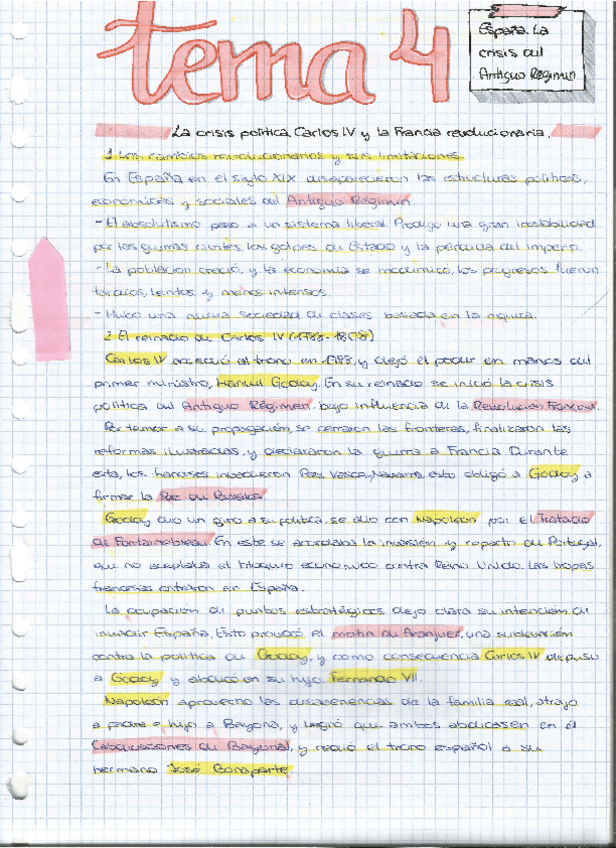 tema 4
España. La
crisis del
Antiguo Régimen
La crisis política, Carlos IV y la Francia revolucionaria.
1. Los cambios revolucionarios y sus limitaciones
En España en el siglo XIX desaparecieron las estructuras políticas,
económicas y sociales del Antiguo Régimen
- El absolutismo paso a un sistema liberal. Produjo una gran inestabilidad
por las guerras civiles, los golpes de Estado y la pérdida del imperio.
- La población creció, y la economía se modernizó, los progresos fueron
tardíos, lentos y menos intensos.
- Hubo una nueva sociedad de clases basada en la riqueza.
2. El reinado de Carlos IV (1788-1808)
Carlos IV accedió al trono en 1788, y dejó el poder en manos del
primer ministro, Manuel Godoy. En su reinado se inició la crisis
política del Antiguo Régimen, bajo influencia de la Revolución Francesa.
Por temor a su propagación, se cerraron las fronteras, finalizaron las
reformas ilustradas, y declararon la guerra a Francia. Durante
esta, los franceses invadieron País Vasco y Navarra, esto obligó a Godoy a
firmar la Paz de Basilea.
Godoy dio un giro a su política, se alió con Napoleón por el Tratado
de Fontainebleau. En este se acordaba la invasión y reparto de Portugal,
que no aceptaba el bloqueo económico contra Reino Unido. Las tropas
francesas entraron en España.
La ocupación de puntos estratégicos dejo clara su intención de
invadir España. Esto provocó el motín de Aranjuez, una sublevación
contra la política de Godoy, y como consecuencia Carlos IV depuso
a Godoy y abdicó en su hijo, Fernando VII.
Napoleón aprovecho las desavenencias de la familia real, atrajo
a padre e hijo a Bayona, y logró que ambos abdicasen en él
(abdicaciones de Bayona), y cedió el trono español a su
hermano José Bonaparte.